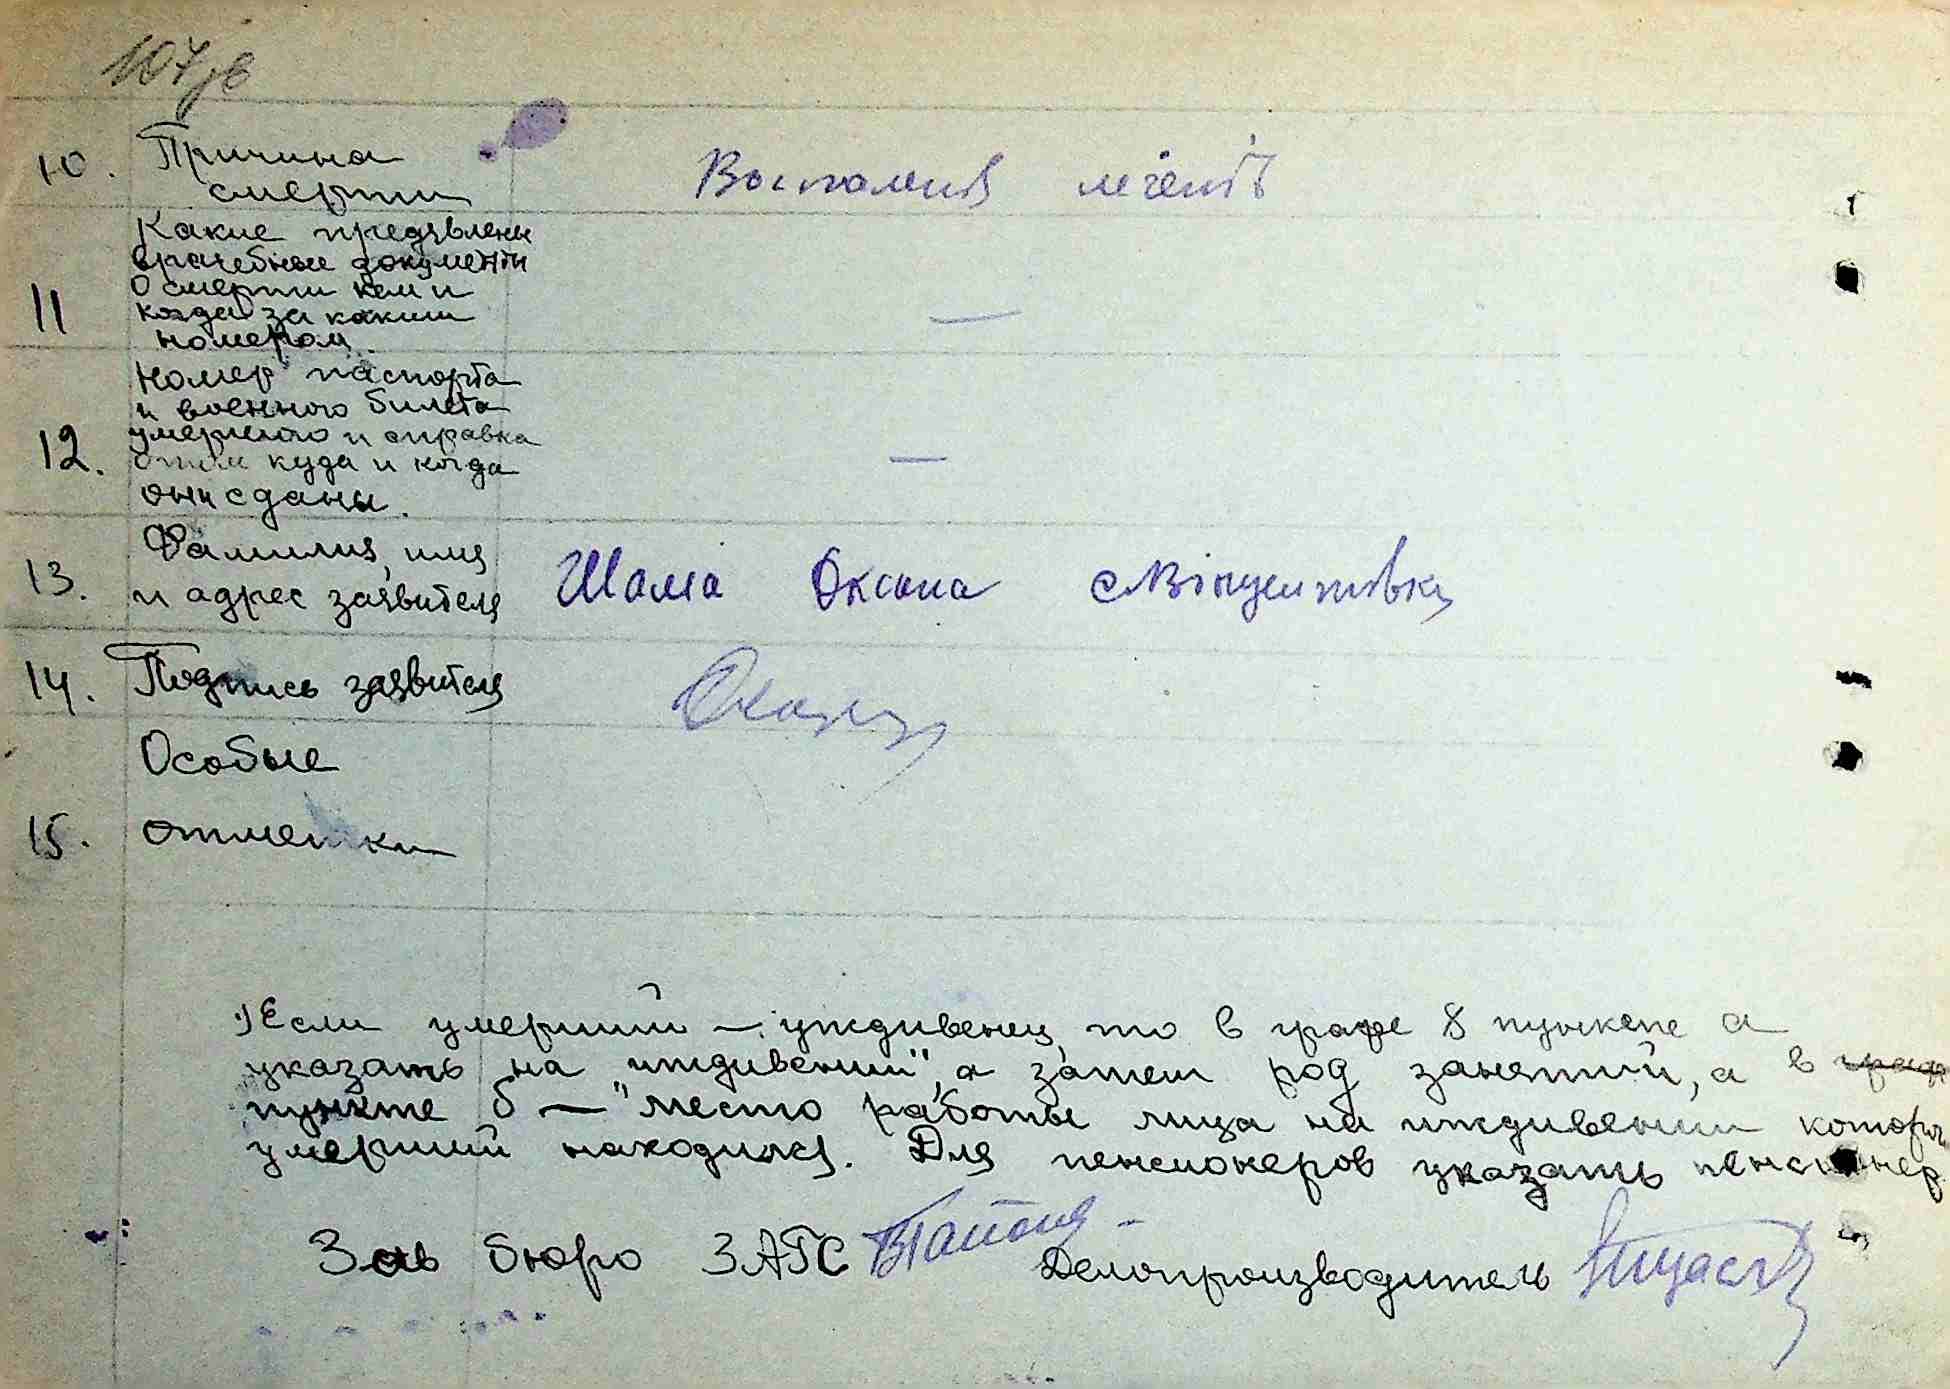 107 зв
10. Причина
смерти
Воспаленія легенів
Какие предявлены
врачебные документы
11 о смерти кем и
когда за каким
номером.
—
Номер паспорта
и военного билета
12. умершего и справка
о том куда и когда
они сданы.
—
13. Фамилия, имя
и адрес заявителя
Шама Оксана с Вінцентовка
14. Подпись заявителя
Особые
15. отметки
1) Если умерший — иждивенец, то в графе 8 пункте а
указать на "иждивении", а затем род занятий, а в граф
пункте б — "место работы лица на иждивении котор
умерший находился. Для пенсионеров указать пенсионер
Зав бюро ЗАГС Делопроизводитель